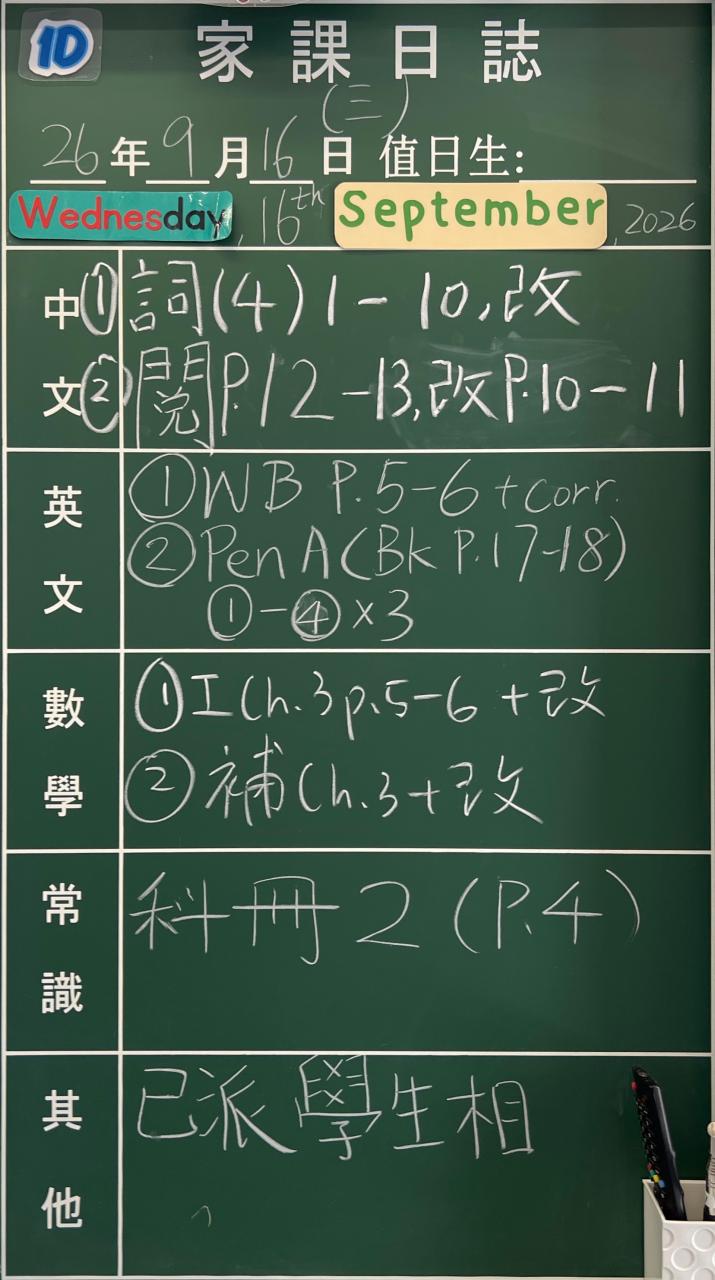 1D
家課日誌
(三)
26年9月16日 值日生:
Wednesday, 16th September, 2026
中文
①詞(4)1-10,改
②閱P.12-13,改P.10-11
英文
①WB P.5-6+corr.
②Pen A(Bk P.17-18)
①-④×3
數學
①工Ch.3p.5-6+改
②補Ch.3+改
常識
科冊2(P.4)
其他
已派學生相